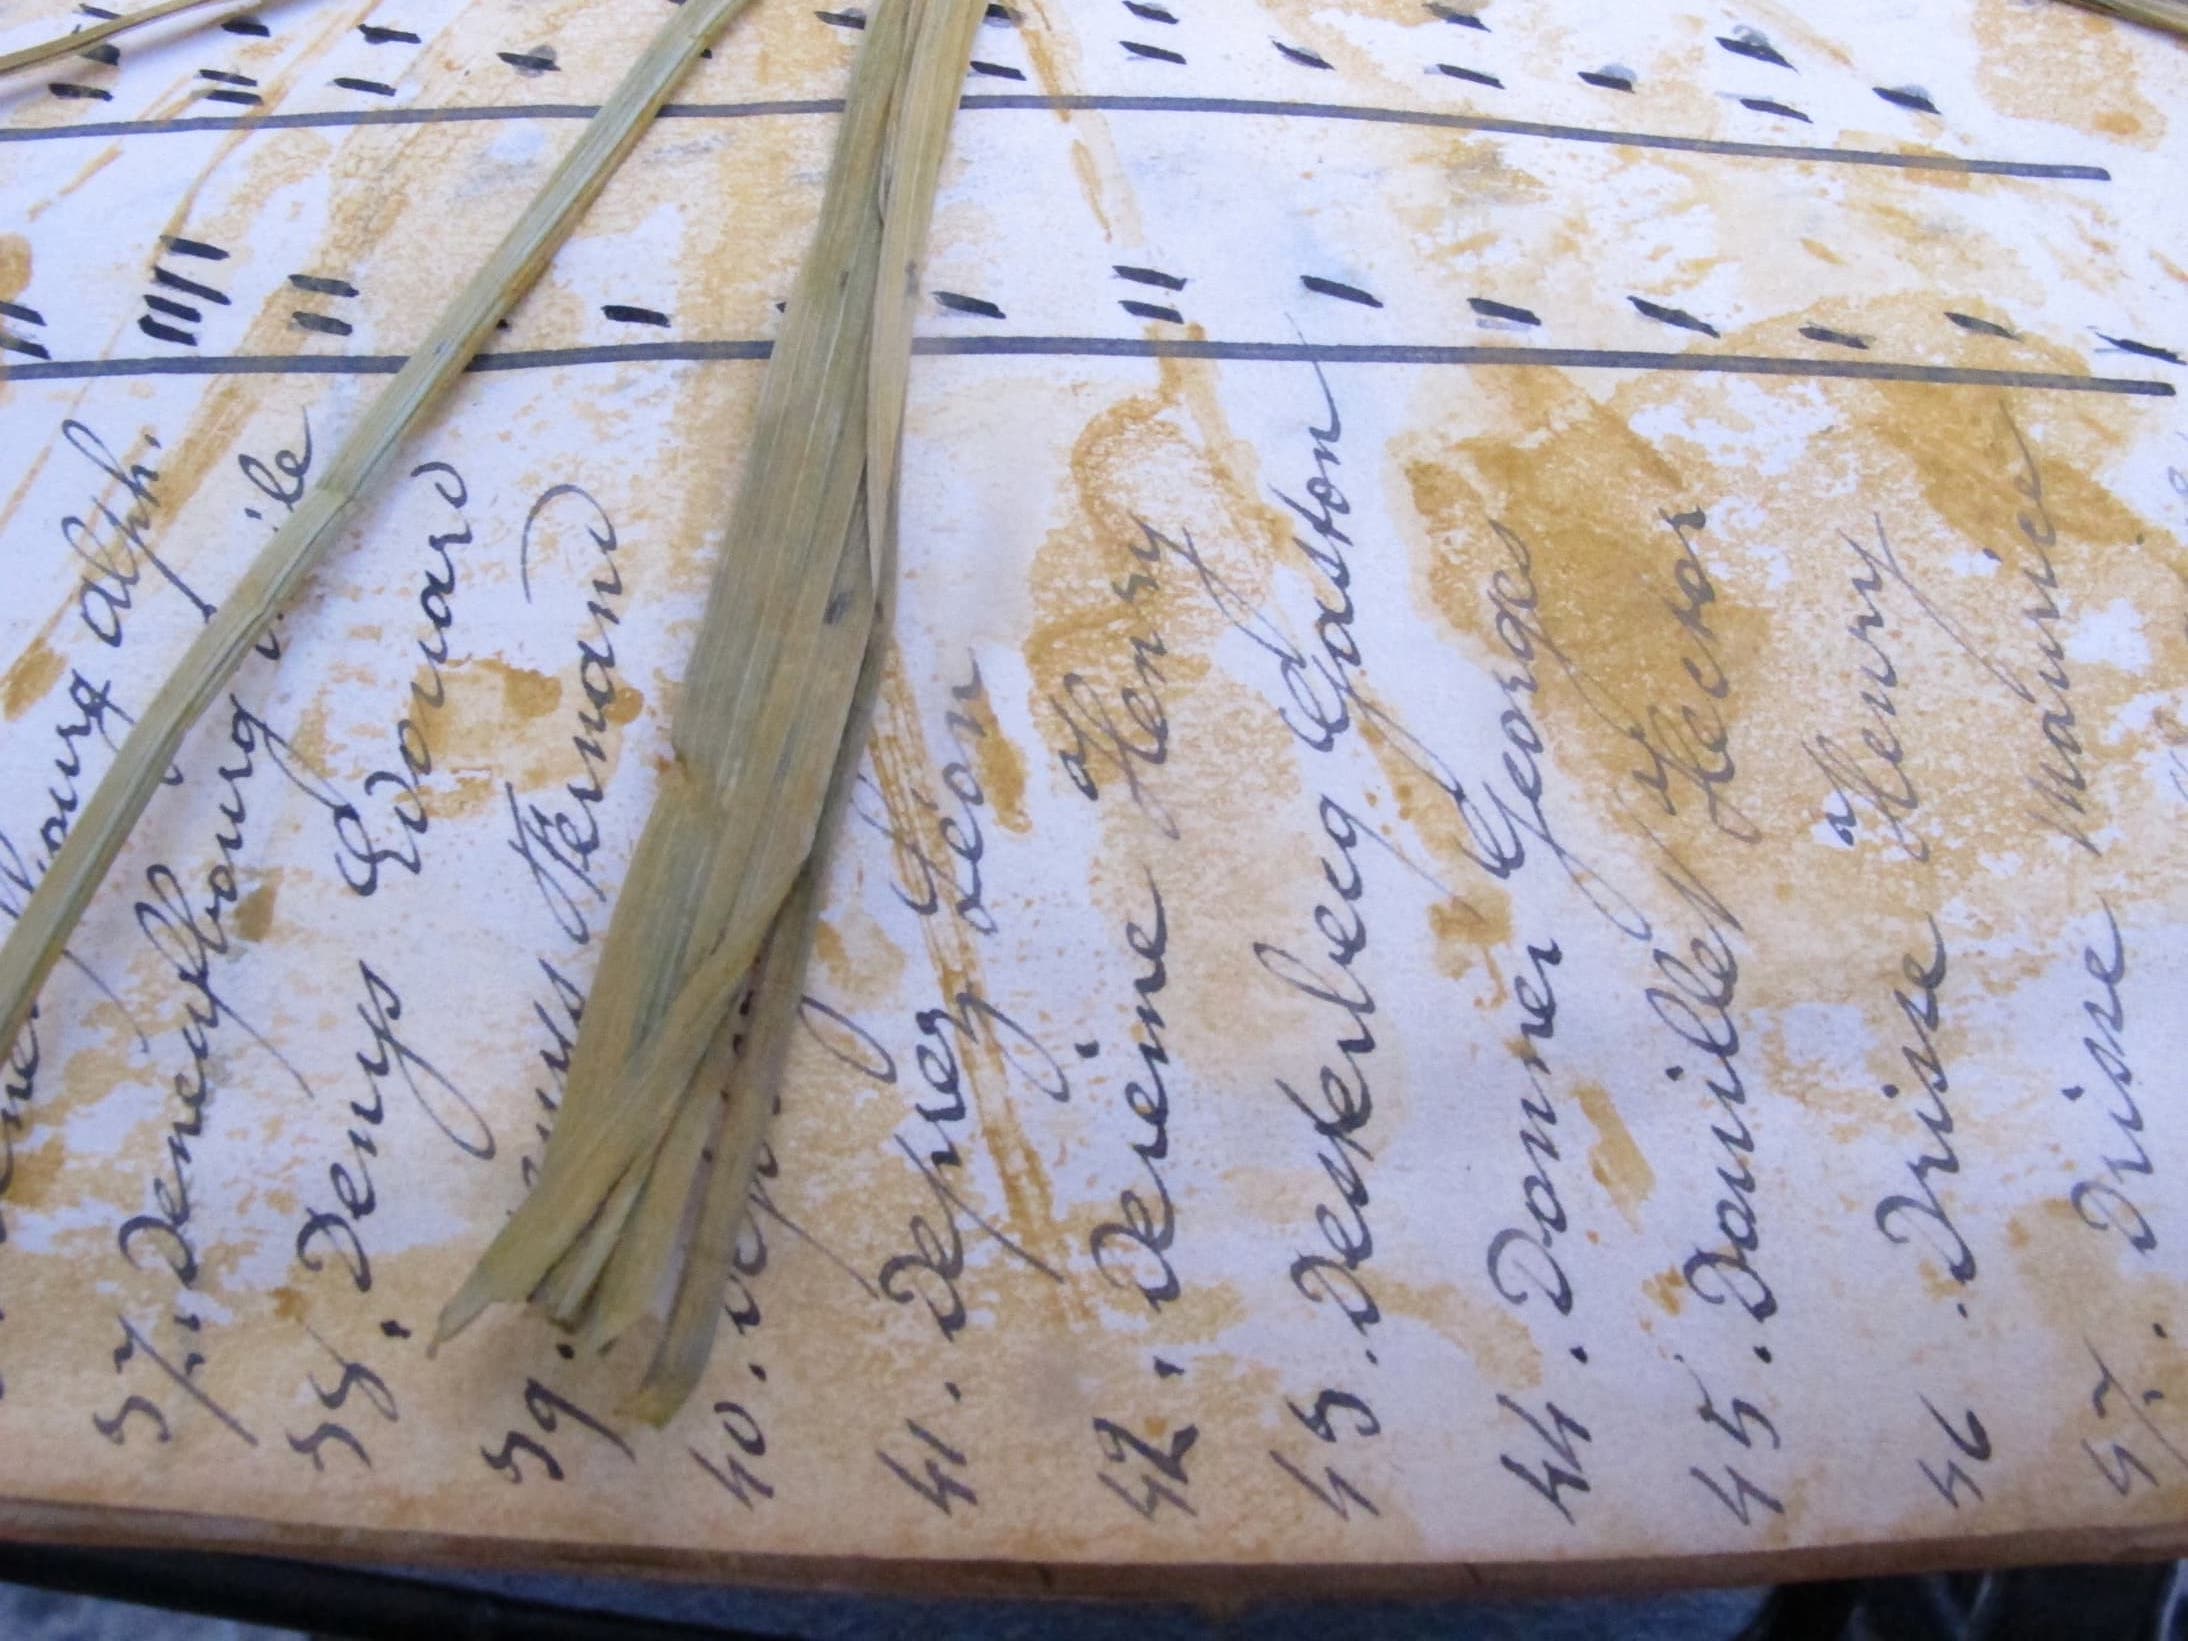 alph.
37. Deneufbourg
38. Denys Edouard
39. Fernand
40.
41. Deprez Léon
42. Dereine Henry
43. Desterbecq Gaston
44. Donner Georges
45. Douillez Hector
46. Drisse Henry
47. Drisse maurice